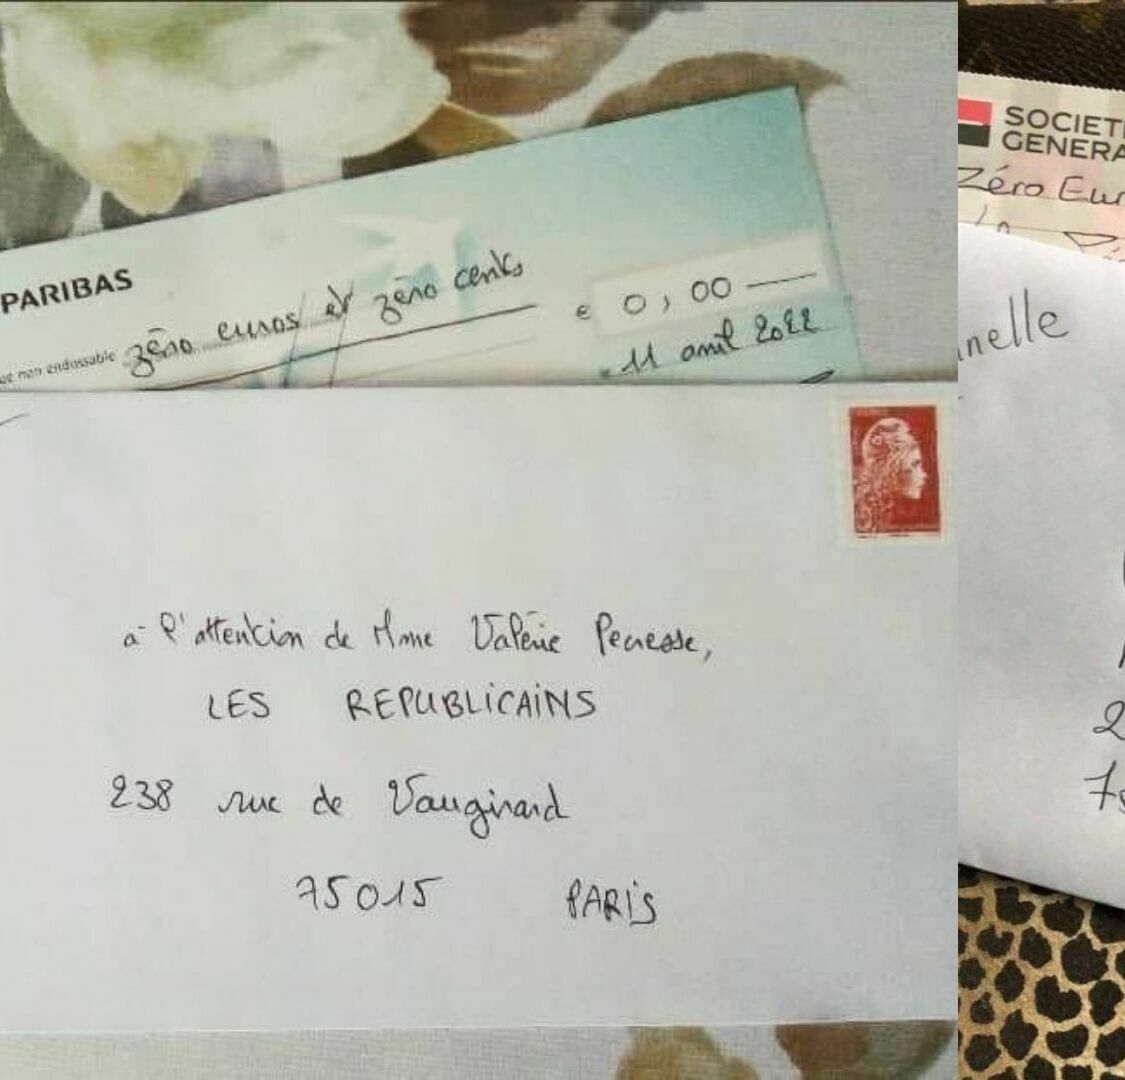 PARIBAS
non endossable zéro euros et zéro cents
€ 0,00
11 avril 2022
à l'attention de Mme Valérie Pecresse,
LES REPUBLICAINS
238 rue de Vaugirard
75015 PARIS
SOCIET
GENERA
Zéro Eur
nelle
2
75